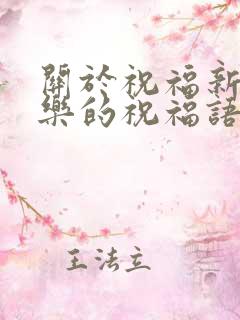 關於祝福新
樂的祝福語
王法立